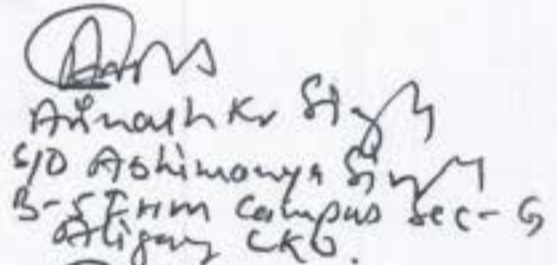 Avinash Kr Singh
S/O Abhimanya Singh
B-5 IHM Campus Sec-G
Aliganj LKO.